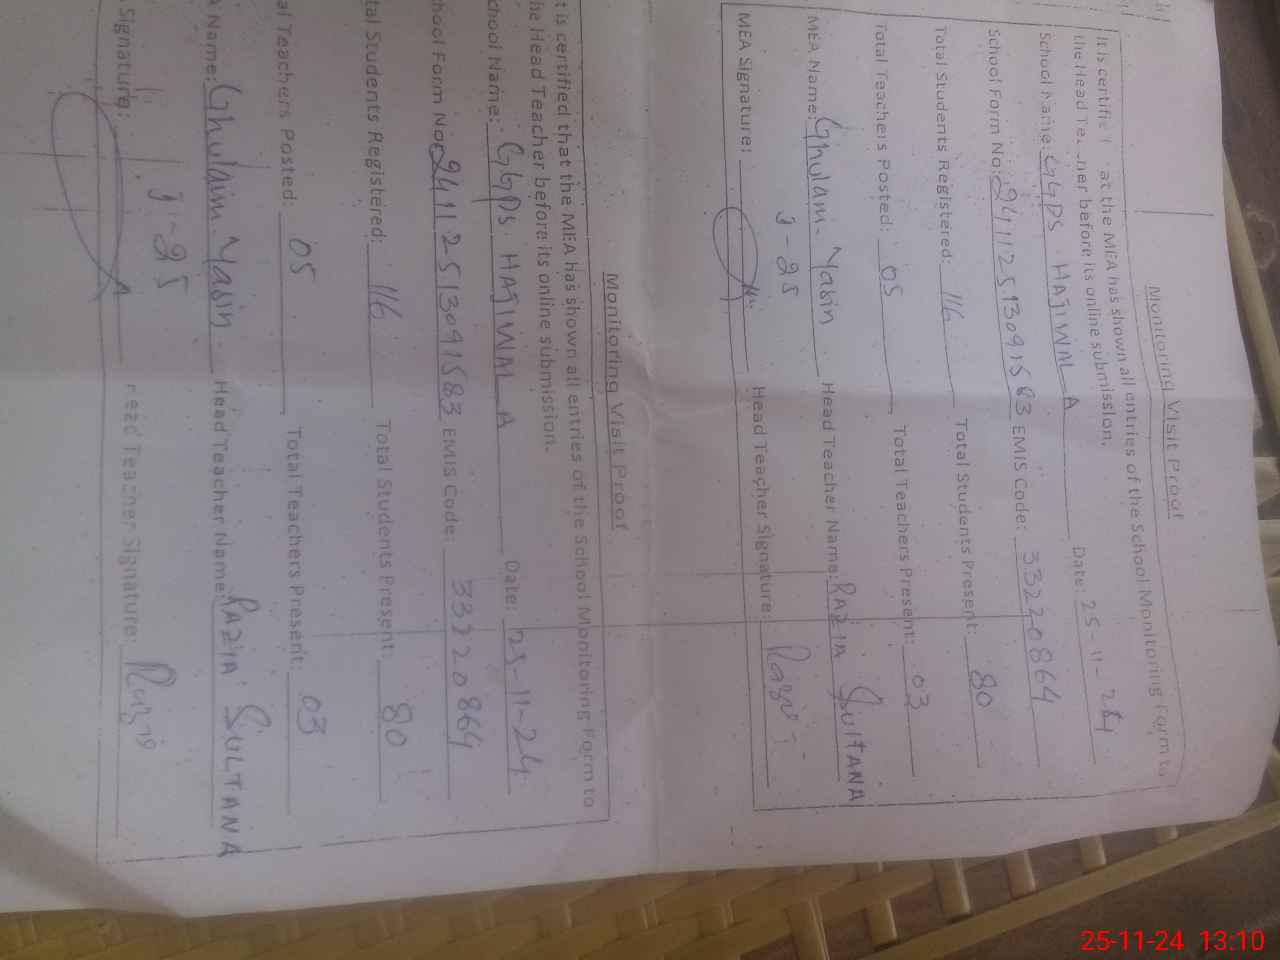 Monitoring Visit Proof
It is certified at the MEA has shown all entries of the School Monitoring Form to
the Head Te ner before its online submission.
School Name: GGPS HAJIWAL A Date: 25-11-24
School Form No: 241125130915 83 EMIS Code: 33220864
Total Students Registered: 116 Total Students Present: 80
Total Teachers Posted: 05 Total Teachers Present: 03
MEA Name: Ghulam Yasin Head Teacher Name: RAZIA SULTANA
J-25
MEA Signature: Head Teacher Signature: Razia
Monitoring Visit Proof
t is certified that the MEA has shown all entries of the School Monitoring Form to
he Head Teacher before its online submission.
chool Name: GGPS HAJIWAL A Date: 25-11-24
hool Form No: 24112513091583 EMIS Code: 33220864
tal Students Registered: 116 Total Students Present: 80
al Teachers Posted: 05 Total Teachers Present: 03
A Name: Ghulam Yasin Head Teacher Name: RAZIA SULTANA
J-25
Signature: Head Teacher Signature: Razia
25-11-24 13:10